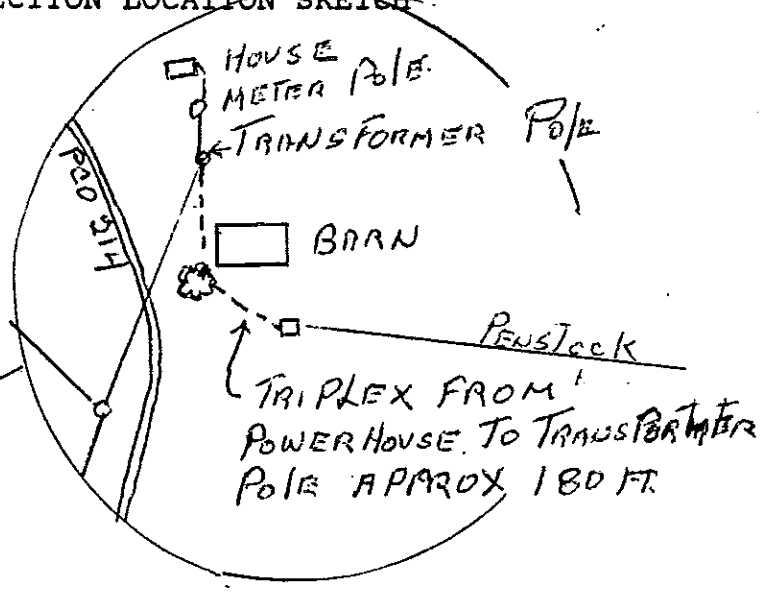 ECTION LOCATION SKETCH
HOUSE
METER POLE.
TRANSFORMER POLE
PCO 314
BARN
PENSTOCK
TRIPLEX FROM
POWERHOUSE. TO
POLE APPROX 180 FT.